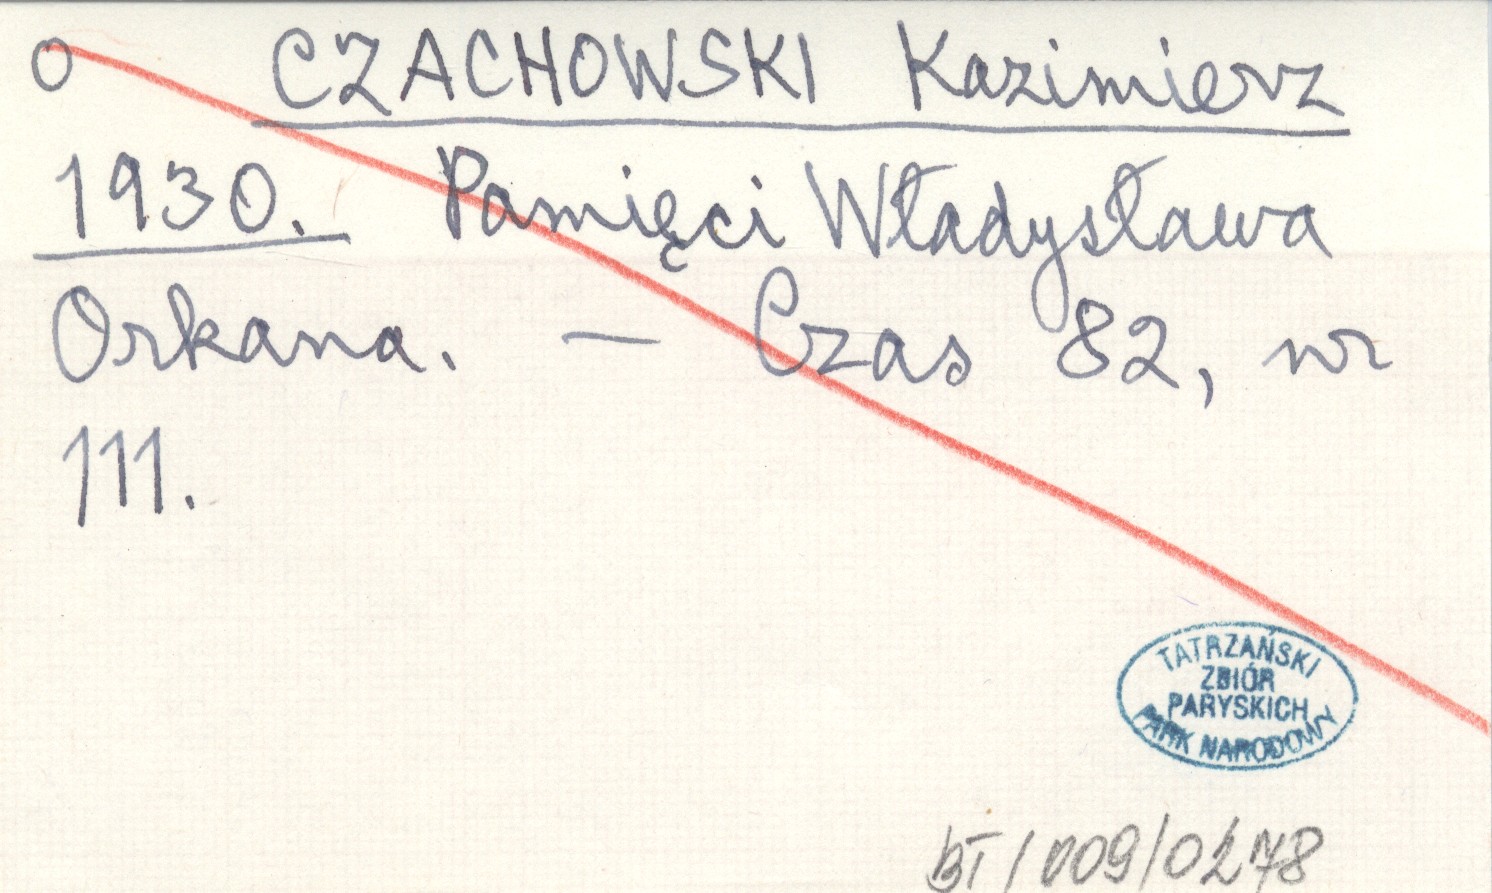 O CZACHOWSKI Kazimierz
1930. Pamięci Władysława
Orkana. — Czas 82, nr
111.
TATRZAŃSKI
ZBIÓR
PARYSKICH
PARK NARODOWY
BT/009/0278